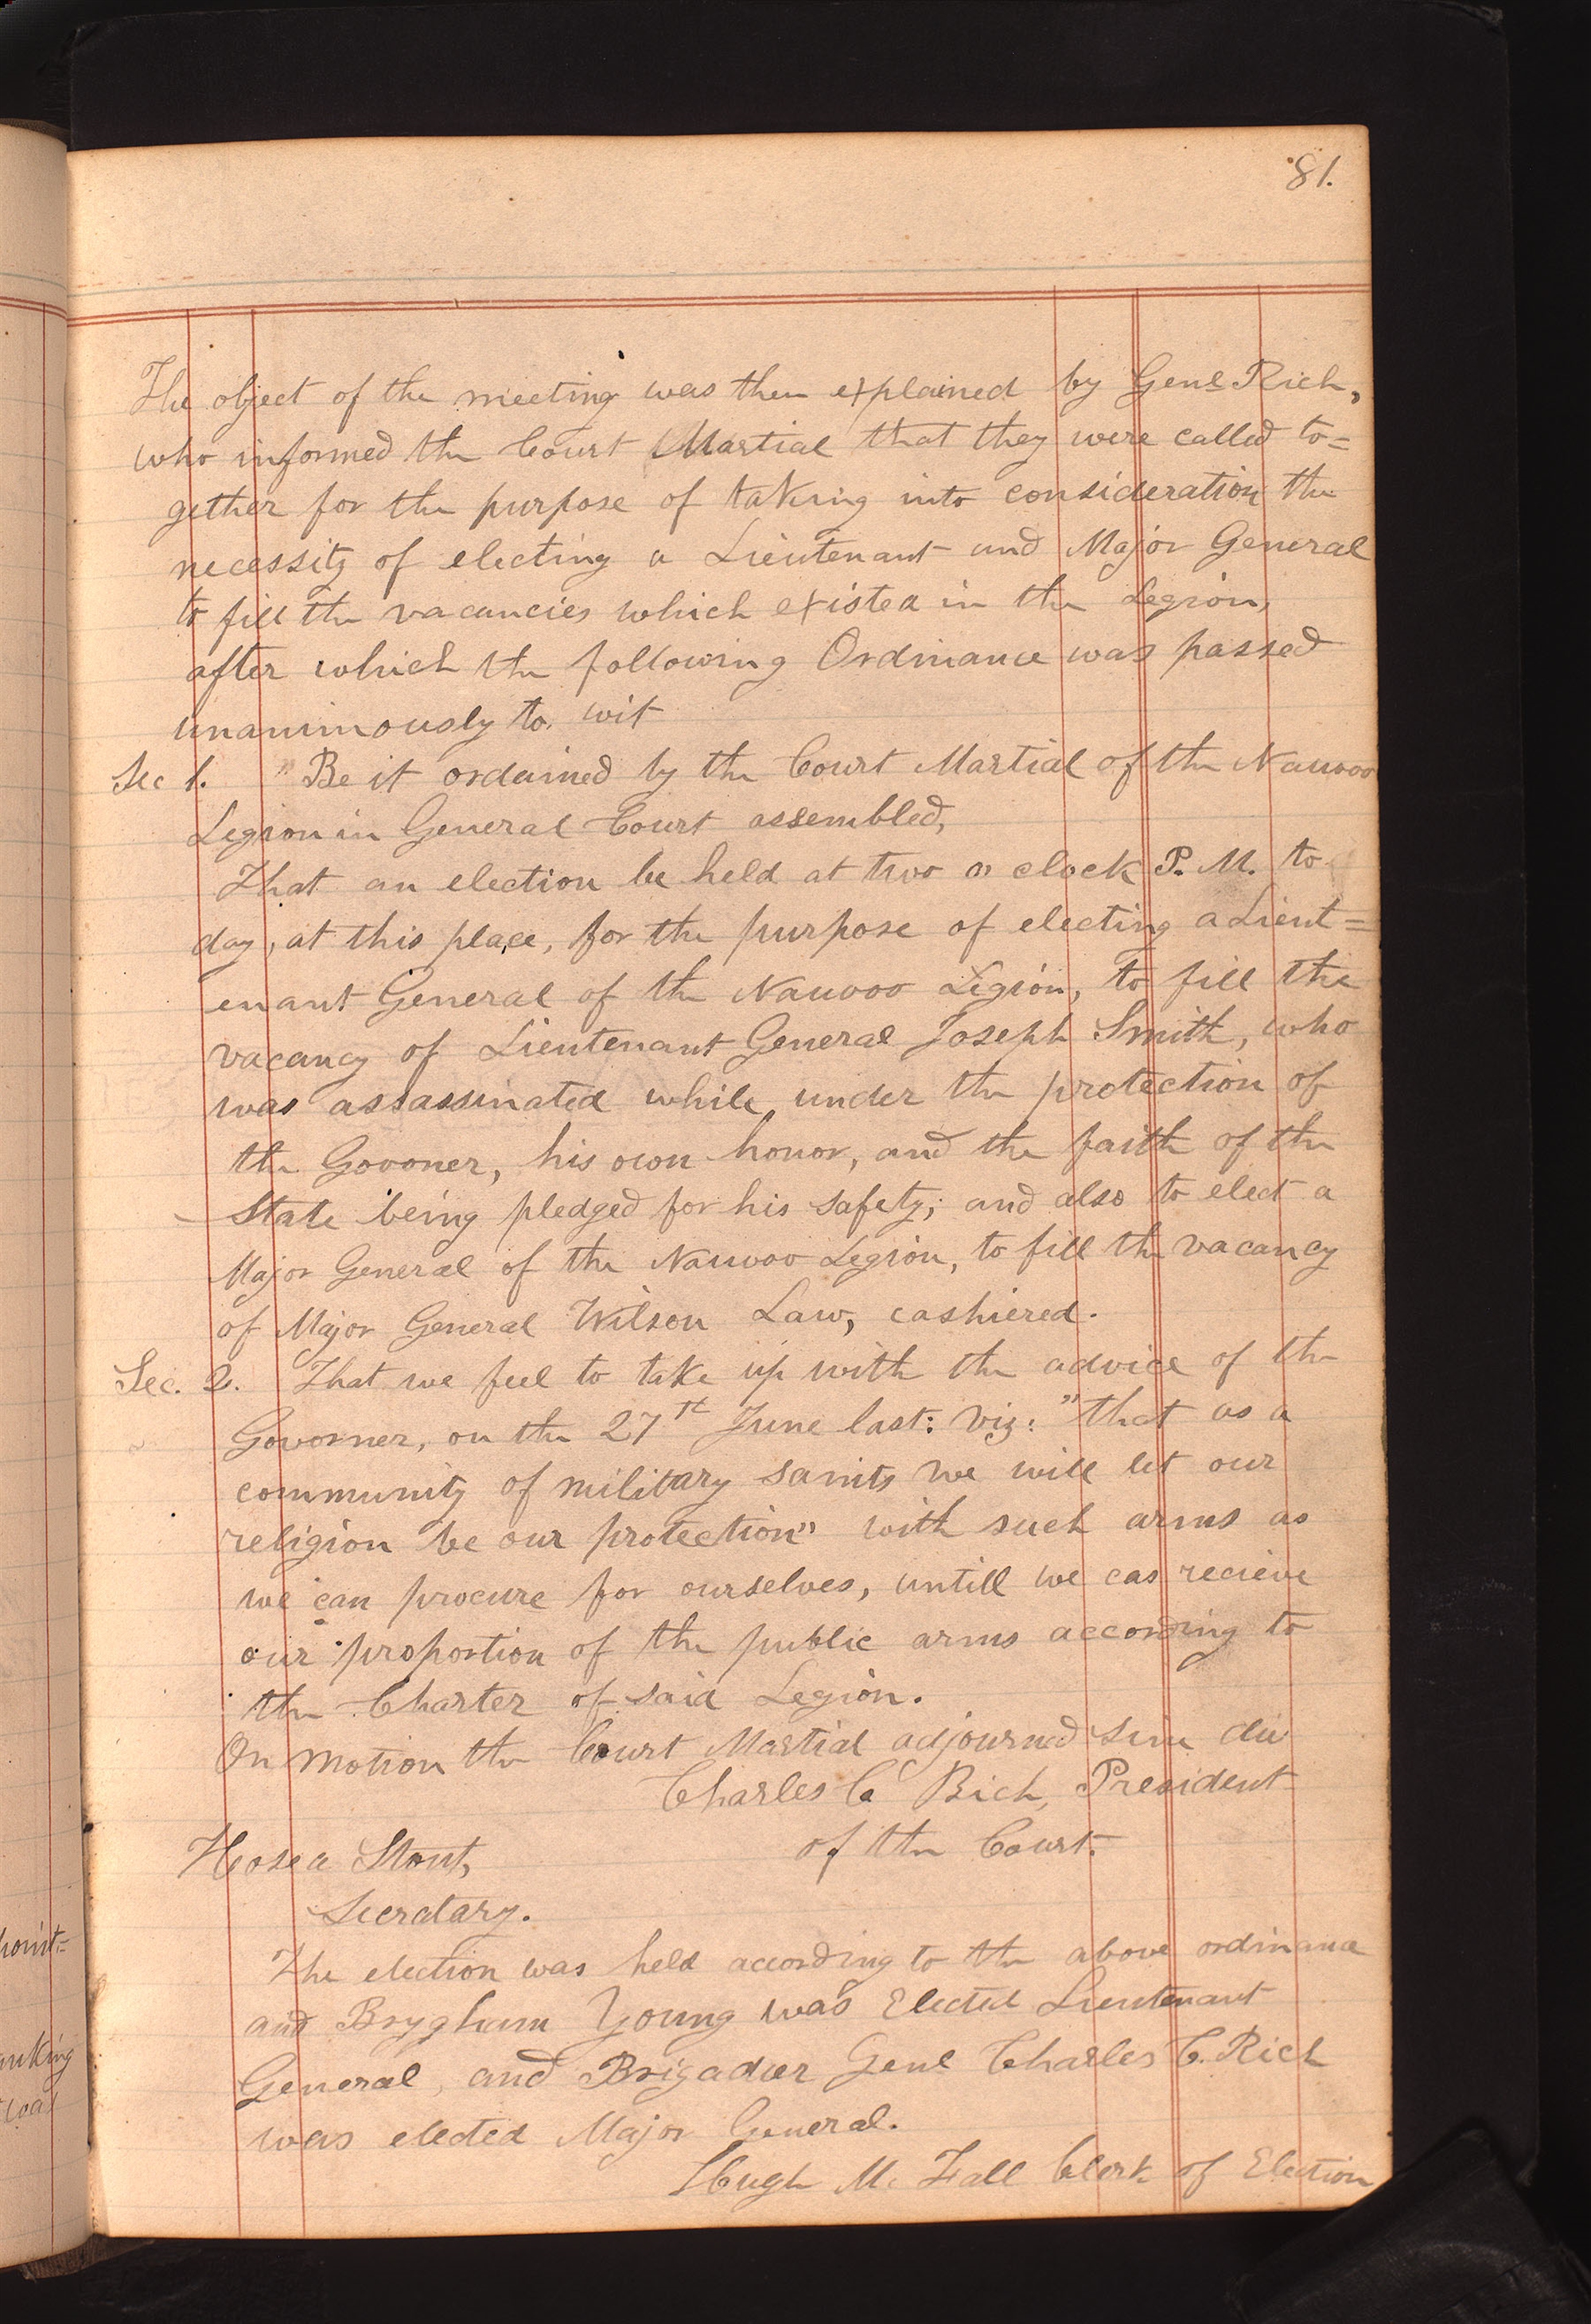 81.
The object of the meeting was then explained by Genl Rich,
who informed the Court Martial that they were called to=
gether for the purpose of taking into consideration the
necessity of electing a Lieutenant and Major General
to fill the vacancies which existed in the Legion,
after which the following Ordinance was passed
unanimously to. wit
Sec 1. " Be it ordained by the Court Martial of the Nauvoo
Legion in General Court assembled,
That an election be held at two o clock P. M. to
day, at this place, for the purpose of electing a Lieut=
enant General of the Nauvoo Legion, to fill the
vacancy of Lieutenant General Joseph Smith, who
was assassinated while, under the protection of
the Govoner, his own honor, and the faith of the
State being pledged for his safety; and also to elect a
Major General of the Nauvoo Legion, to fill the vacancy
of Major General Wilson Law, cashiered.
Sec. 2. That we feel to take up with the advice of the
Govorner, on the 27th June last: viz: "that as a
community of military saints we will let our
religion be our protection" with such arms as
we can procure for ourselves, untill we cas recieve
our proportion of the public arms according to
the Charter of said Legion.
On motion the Court Martial adjourned sine die
Charles C. Rich, President
of the Court.
Hosea Stout,
Secratary.
The election was held according to the above ordinance
and Brygham Young was Elected Lieutenant
General, and Brigadier Genl Charles C. Rich
was elected Major General.
Hugh Mc Fall Clerk of Election
point=
anking